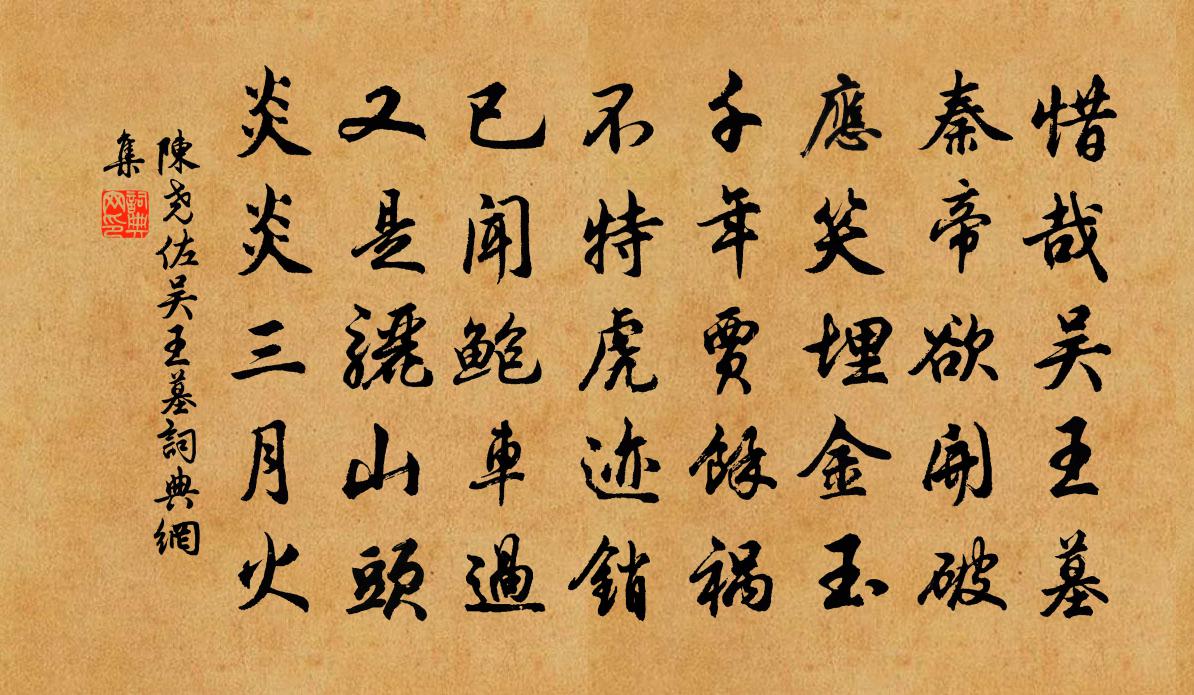 惜哉吴王墓
秦帝欲開破
應笑埋金玉
千年賈餘禍
不特虎迹銷
已聞鮑車過
又是驪山頭
炎炎三月火
陳堯佐吴王墓詞典網
集
詞典
网印